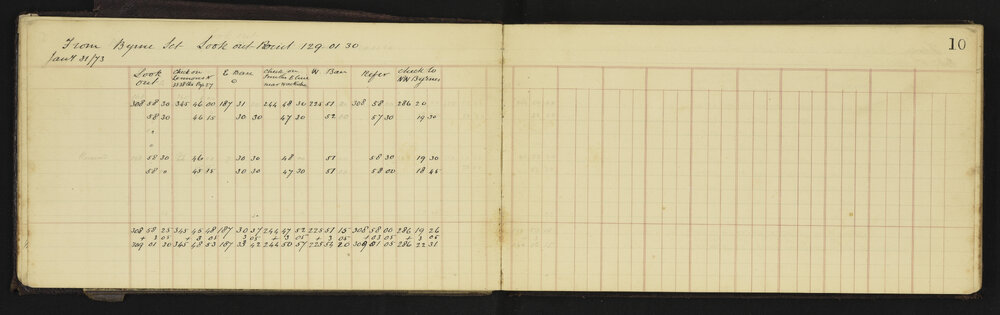 10
From Byrne Set Look out Point 129 01 30
Jany 31/73
Look out Check on E Base Check on W. Base Refer Check to NW Byrnes
308 58 30 345 46 00 187 31 244 48 30 225 51 308 58 286 20
58 30 46 15 30 30 47 30 52 57 30 19 30
"
"
58 30 46 30 30 48 51 58 30 19 30
58 0 45 15 30 30 47 30 51 58 00 18 45
308 58 25 345 45 48 187 30 37 244 47 52 225 51 15 308 58 00 286 19 26
+ 3 05 + 3 05 3 05 + 3 05 + 3 05 + 03 05 + 3 05
309 01 30 345 48 53 187 33 42 244 50 57 225 54 20 309 01 05 286 22 31